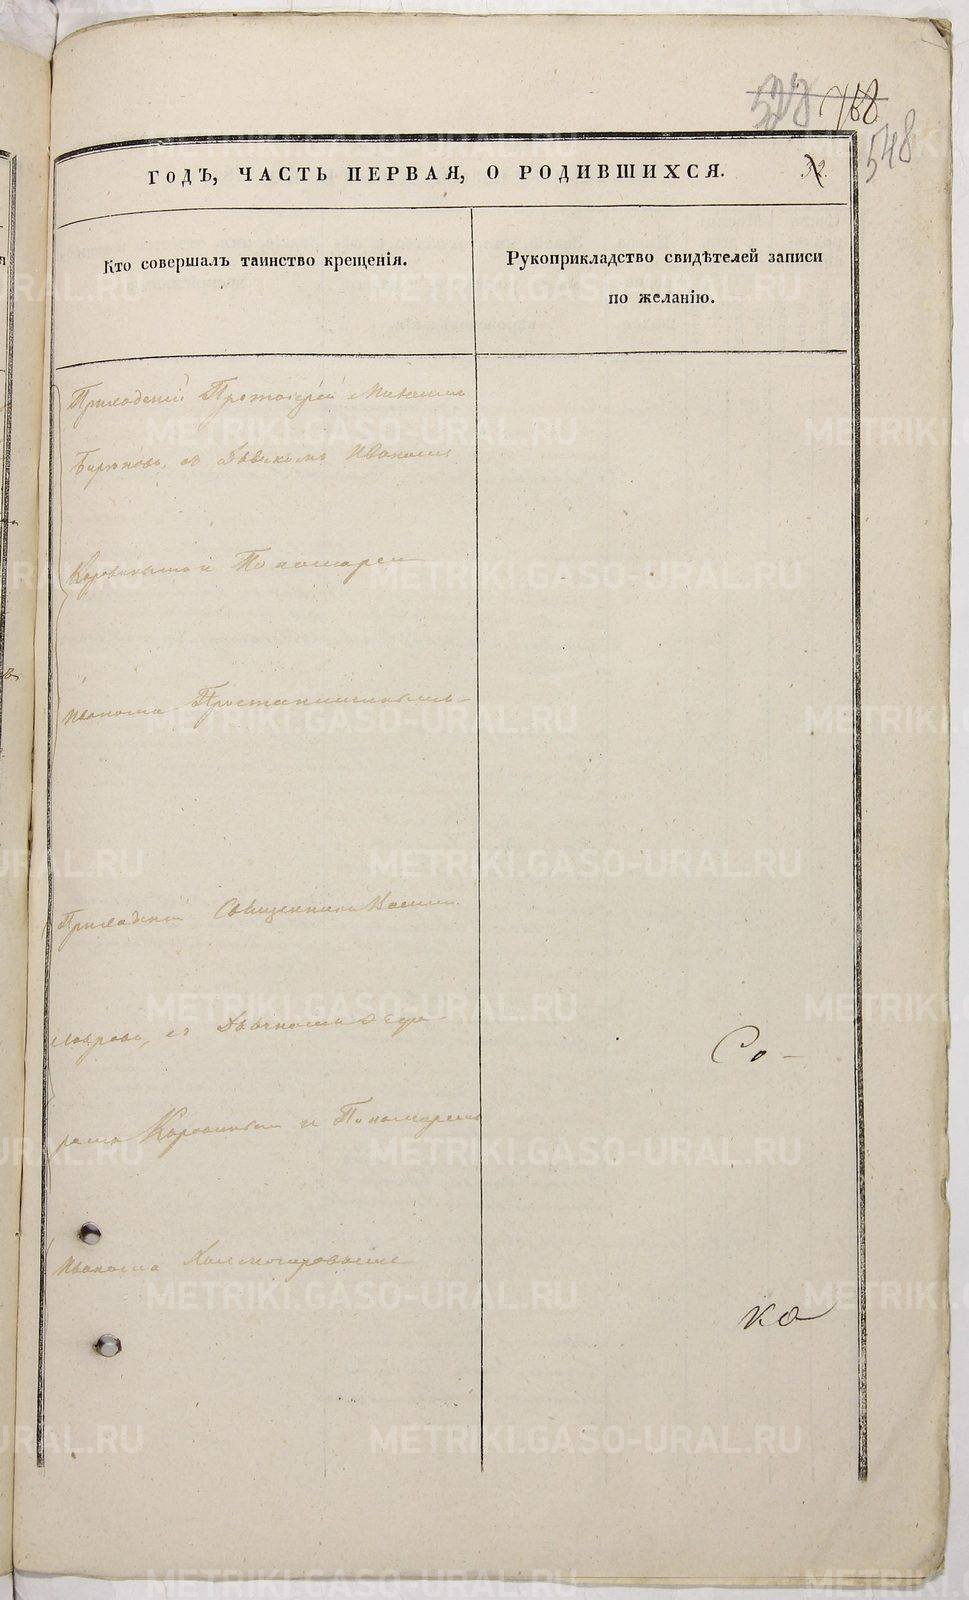 528 768
548
ГОДЪ, ЧАСТЬ ПЕРВАЯ, О РОДИВШИХСЯ. 32.
Кто совершалъ таинство крещенія.
Рукоприкладство свидѣтелей записи
по желанію.
Приходскій Протоіерей Михаилъ
Бирюковъ, съ Дьячкомъ Иваномъ
Коровинымъ и Пономаремъ
Иваномъ
Приходскій Священникъ Василій
Лавровъ, съ Дьячкомъ Ѳедо
ромъ Коровинымъ и Пономаремъ
Со-
Иваномъ Холмогоровымъ
ко
METRIKI.GASO-URAL.RU